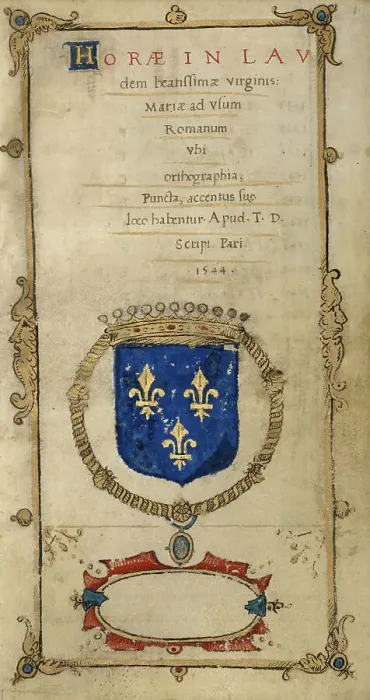 HORÆ IN LAV
dem beatissimæ virginis:
Mariæ ad vsum
Romanum
vbi
orthographia,
Puncta, accentus suo
loco habentur. Apud. T. D.
Script. Pari.
· 1544 ·